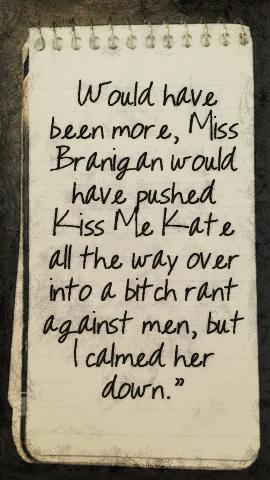 Would have
been more, Miss
Branigan would
have pushed
Kiss Me Kate
all the way over
into a bitch rant
against men, but
I calmed her
down.”